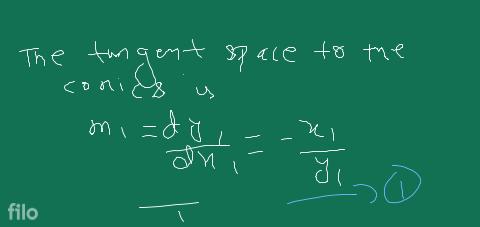 The tangent space to the
conics is
m₁ = dy₁/dx₁ = -x₁/y₁
→ ①
filo